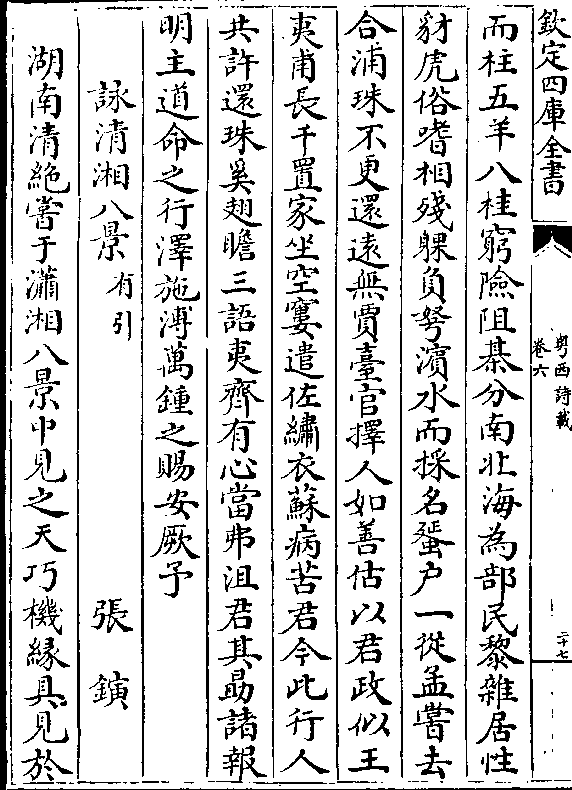 欽定四庫全書
粤西詩載
卷六
二十七
而柱五羊八桂窮險阻碁分南北海為部民黎雜居性
豺虎俗嗜相殘躶負弩濱水而採名蜑户一從孟嘗去
合浦珠不更還遠無賈臺官擇人如善估以君政似王
夷甫長千置家坐空寠遣佐繡衣蘇病苦君今此行人
共許還珠奚翅瞻三語夷齊有心當弗沮君其勗諸報
明主道命之行澤施溥萬鍾之賜安厥予
詠清湘八景有引
張鑌
湖南清絶嘗于瀟湘八景中見之天巧機緣具見於